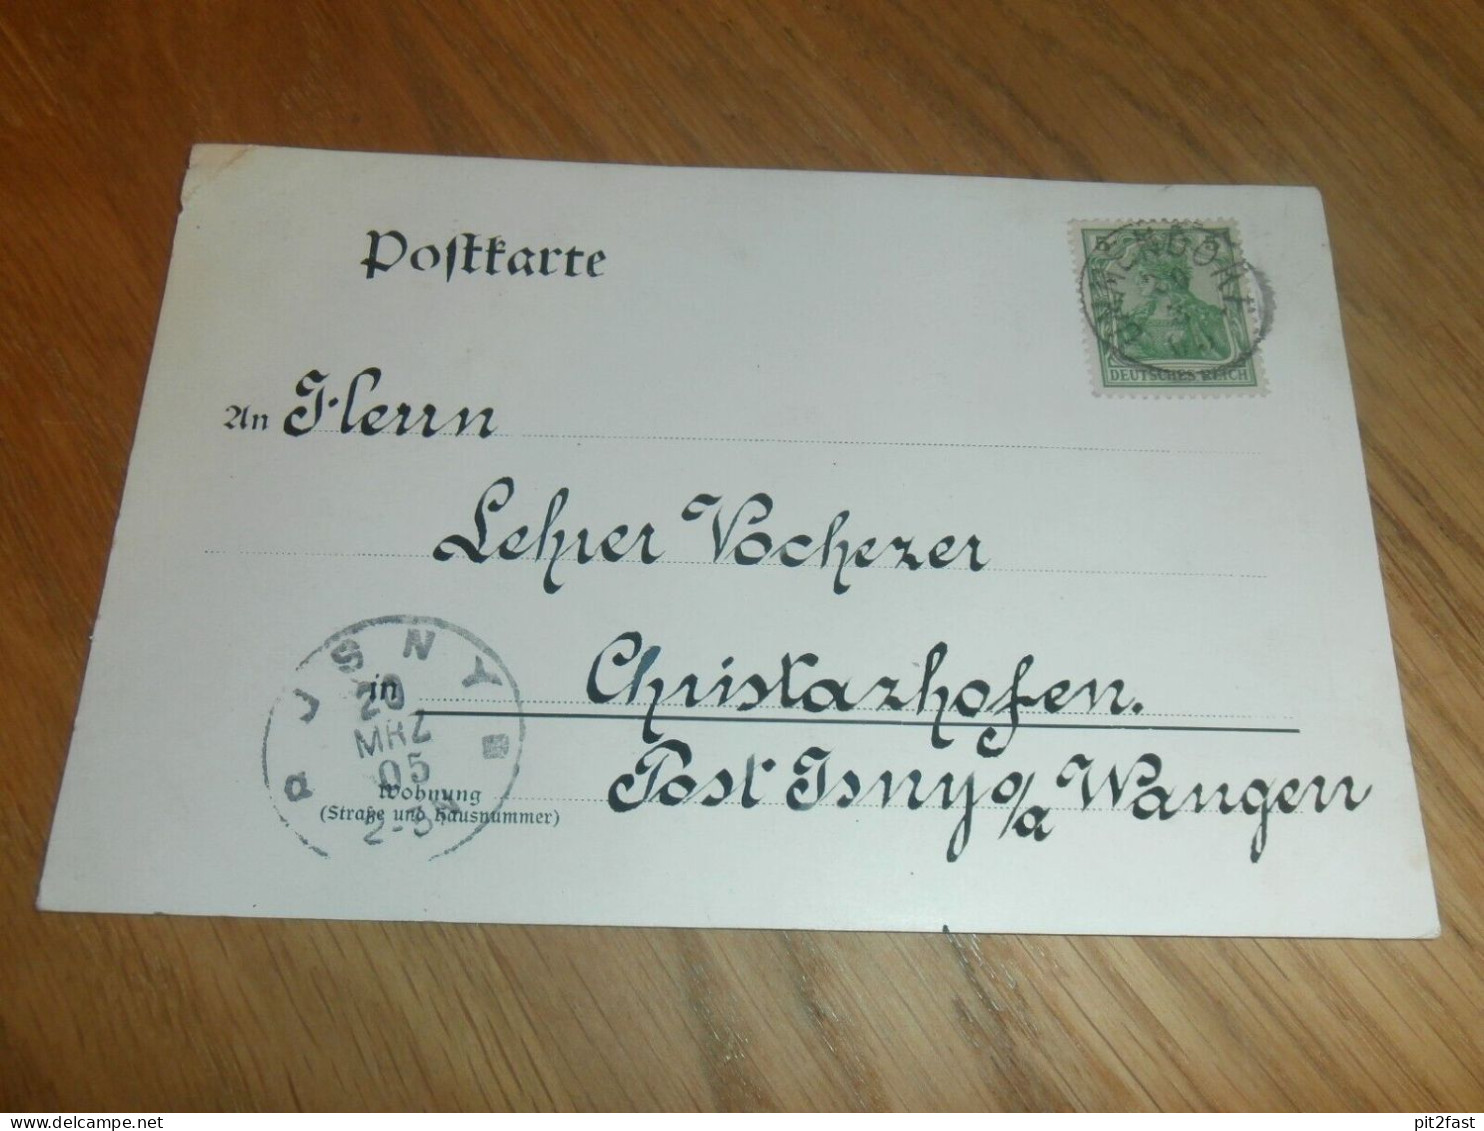 Postkarte
5
DEUTSCHES REICH
An Herrn
Lehrer Vochezer
in Christazhofen.
Post Isny o/a Wangen
Wohnung
(Straße und Hausnummer)
JSNY
20
MRZ
05
delcampe.net
pit2fast